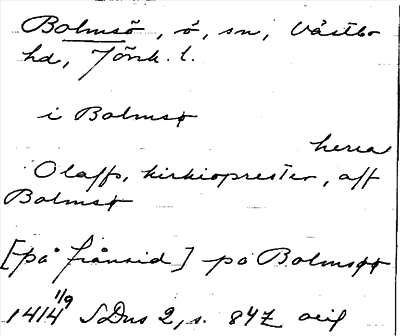 Bolmsö, ö, sn, Västbo
hd, Jönk. l.
i Bolmsø
herra
Olaffs, kirkioprester, aff
Bolmsø
[på frånsid] po Bolmsøø
1414 1/9 SDns 2, s. 847 orig